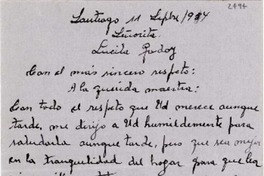 2494
Santiago 11 Septbre/954
Señorita
Lucila Godoy
Con el más sincero respeto:
A la querida maestra:
Con todo el respeto que Ud merece aunque
tarde, me dirijo a Ud humildemente para
saludarla aunque tarde, pero que sea mejor
en la tranquilidad del hogar para que lea